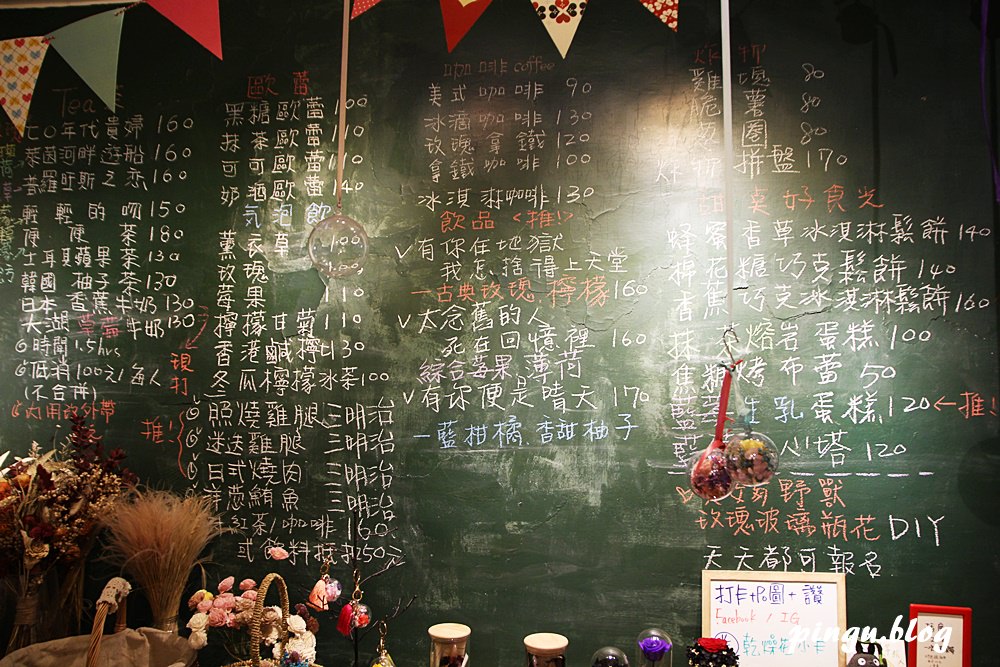 Tea
七〇年代貴婦 160
萊茵河畔遊船 160
普羅旺斯之戀 160
輕輕的吻 150
茶 180
土耳其蘋果茶 130
韓國柚子茶 130
日本香蕉牛奶 130
大湖草莓牛奶 130
時間1.5hrs
低消100元/每人
(不合併)
現打
歐蕾
黑糖歐蕾 100
抹茶歐蕾 110
可可歐蕾 110
奶泡歐蕾 140
氣泡飲
薰衣草 100
玫瑰 100
莓果 110
檸檬甘菊 110
香港鹹檸 130
冬瓜檸檬冰茶 100
推!
照燒雞腿三明治
迷迭雞腿三明治
日式燒肉三明治
洋蔥鮪魚三明治
+紅茶/咖啡 160
或飲料抵扣50元
咖啡 coffee
美式咖啡 90
冰滴咖啡 130
玫瑰拿鐵 120
拿鐵咖啡 100
冰淇淋咖啡 130
飲品<推!>
有你在地獄
我怎捨得上天堂
一古典玫瑰.檸檬 160
太念舊的人
死在回憶裡 160
綜合莓果薄荷
有你便是晴天 170
一藍柑橘.香甜柚子
炸物
雞塊 80
脆薯 80
圈 80
炸物拼盤 170
甜菜好食光
蜂蜜香草冰淇淋鬆餅 140
棉花糖巧克鬆餅 140
香蕉巧克冰淇淋鬆餅 160
抹茶熔岩蛋糕 100
焦糖烤布蕾 50
藍莓生乳蛋糕 120 ←推!
心塔 120
野獸
玫瑰玻璃瓶花DIY
天天都可報名
打卡+PO圖+讚
Facebook / IG
乾燥花小卡
pingu.blog